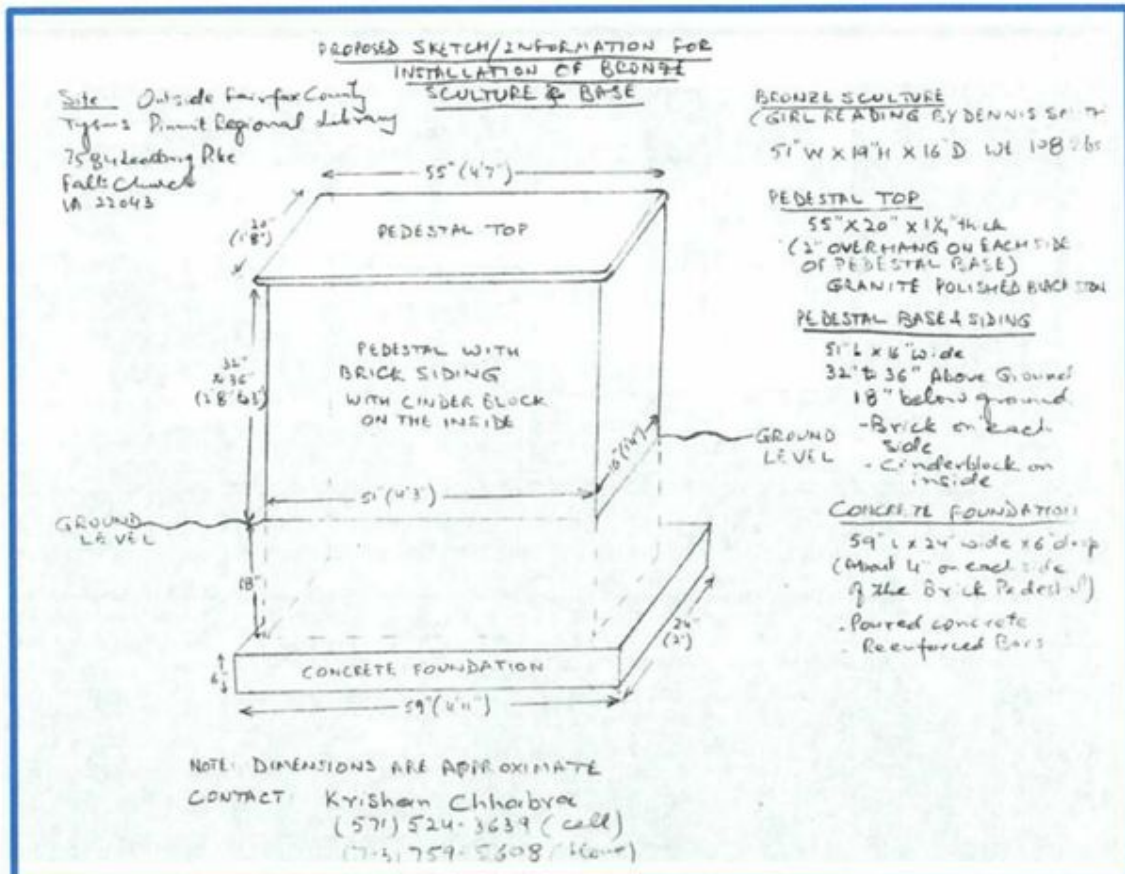 PROPOSED SKETCH/INFORMATION FOR
INSTALLATION OF BRONZE
SCULTURE & BASE
Site Outside Fairfax County
Tysons Pimmit Regional Library
7584 Leesburg Pike
Falls Church
VA 22043
55" (4'7")
20"
(1'8")
PEDESTAL TOP
32"
to 36"
PEDESTAL WITH
BRICK SIDING
WITH CINDER BLOCK
ON THE INSIDE
16" (1'4")
51" (4'3")
GROUND
LEVEL
GROUND
LEVEL
18"
24"
(2')
6"
CONCRETE FOUNDATION
59" (4'11")
BRONZE SCULTURE
(GIRL READING BY DENNIS SMITH
51" W X 19" H X 16" D Wt 108 lbs
PEDESTAL TOP
55" X 20" X thick
(2" OVERHANG ON EACH SIDE
OF PEDESTAL BASE)
GRANITE POLISHED BLACK
PEDESTAL BASE & SIDING
51" L x 16" wide
32" to 36" Above Ground
18" below ground
- Brick on each
side
- Cinderblock on
inside
CONCRETE FOUNDATION
59" L x 24" wide x 6" deep
(About 4" on each side
of the Brick Pedestal)
- Poured concrete
- Reenforced Bars
NOTE: DIMENSIONS ARE APPROXIMATE
CONTACT: Krishan Chhabra
(571) 524-3639 (cell)
759-5608 (Home)